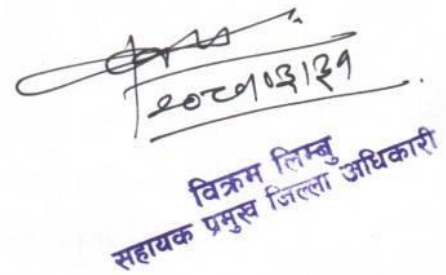 २०८१।०३।३१
विक्रम लिम्बु
सहायक प्रमुख जिल्ला अधिकारी